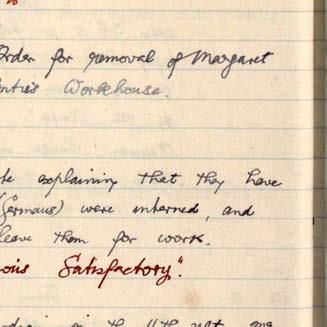 Order for removal of Margaret
Workhouse.
explaining that they have
(Germans) were interned, and
leave them for work.
Satisfactory".